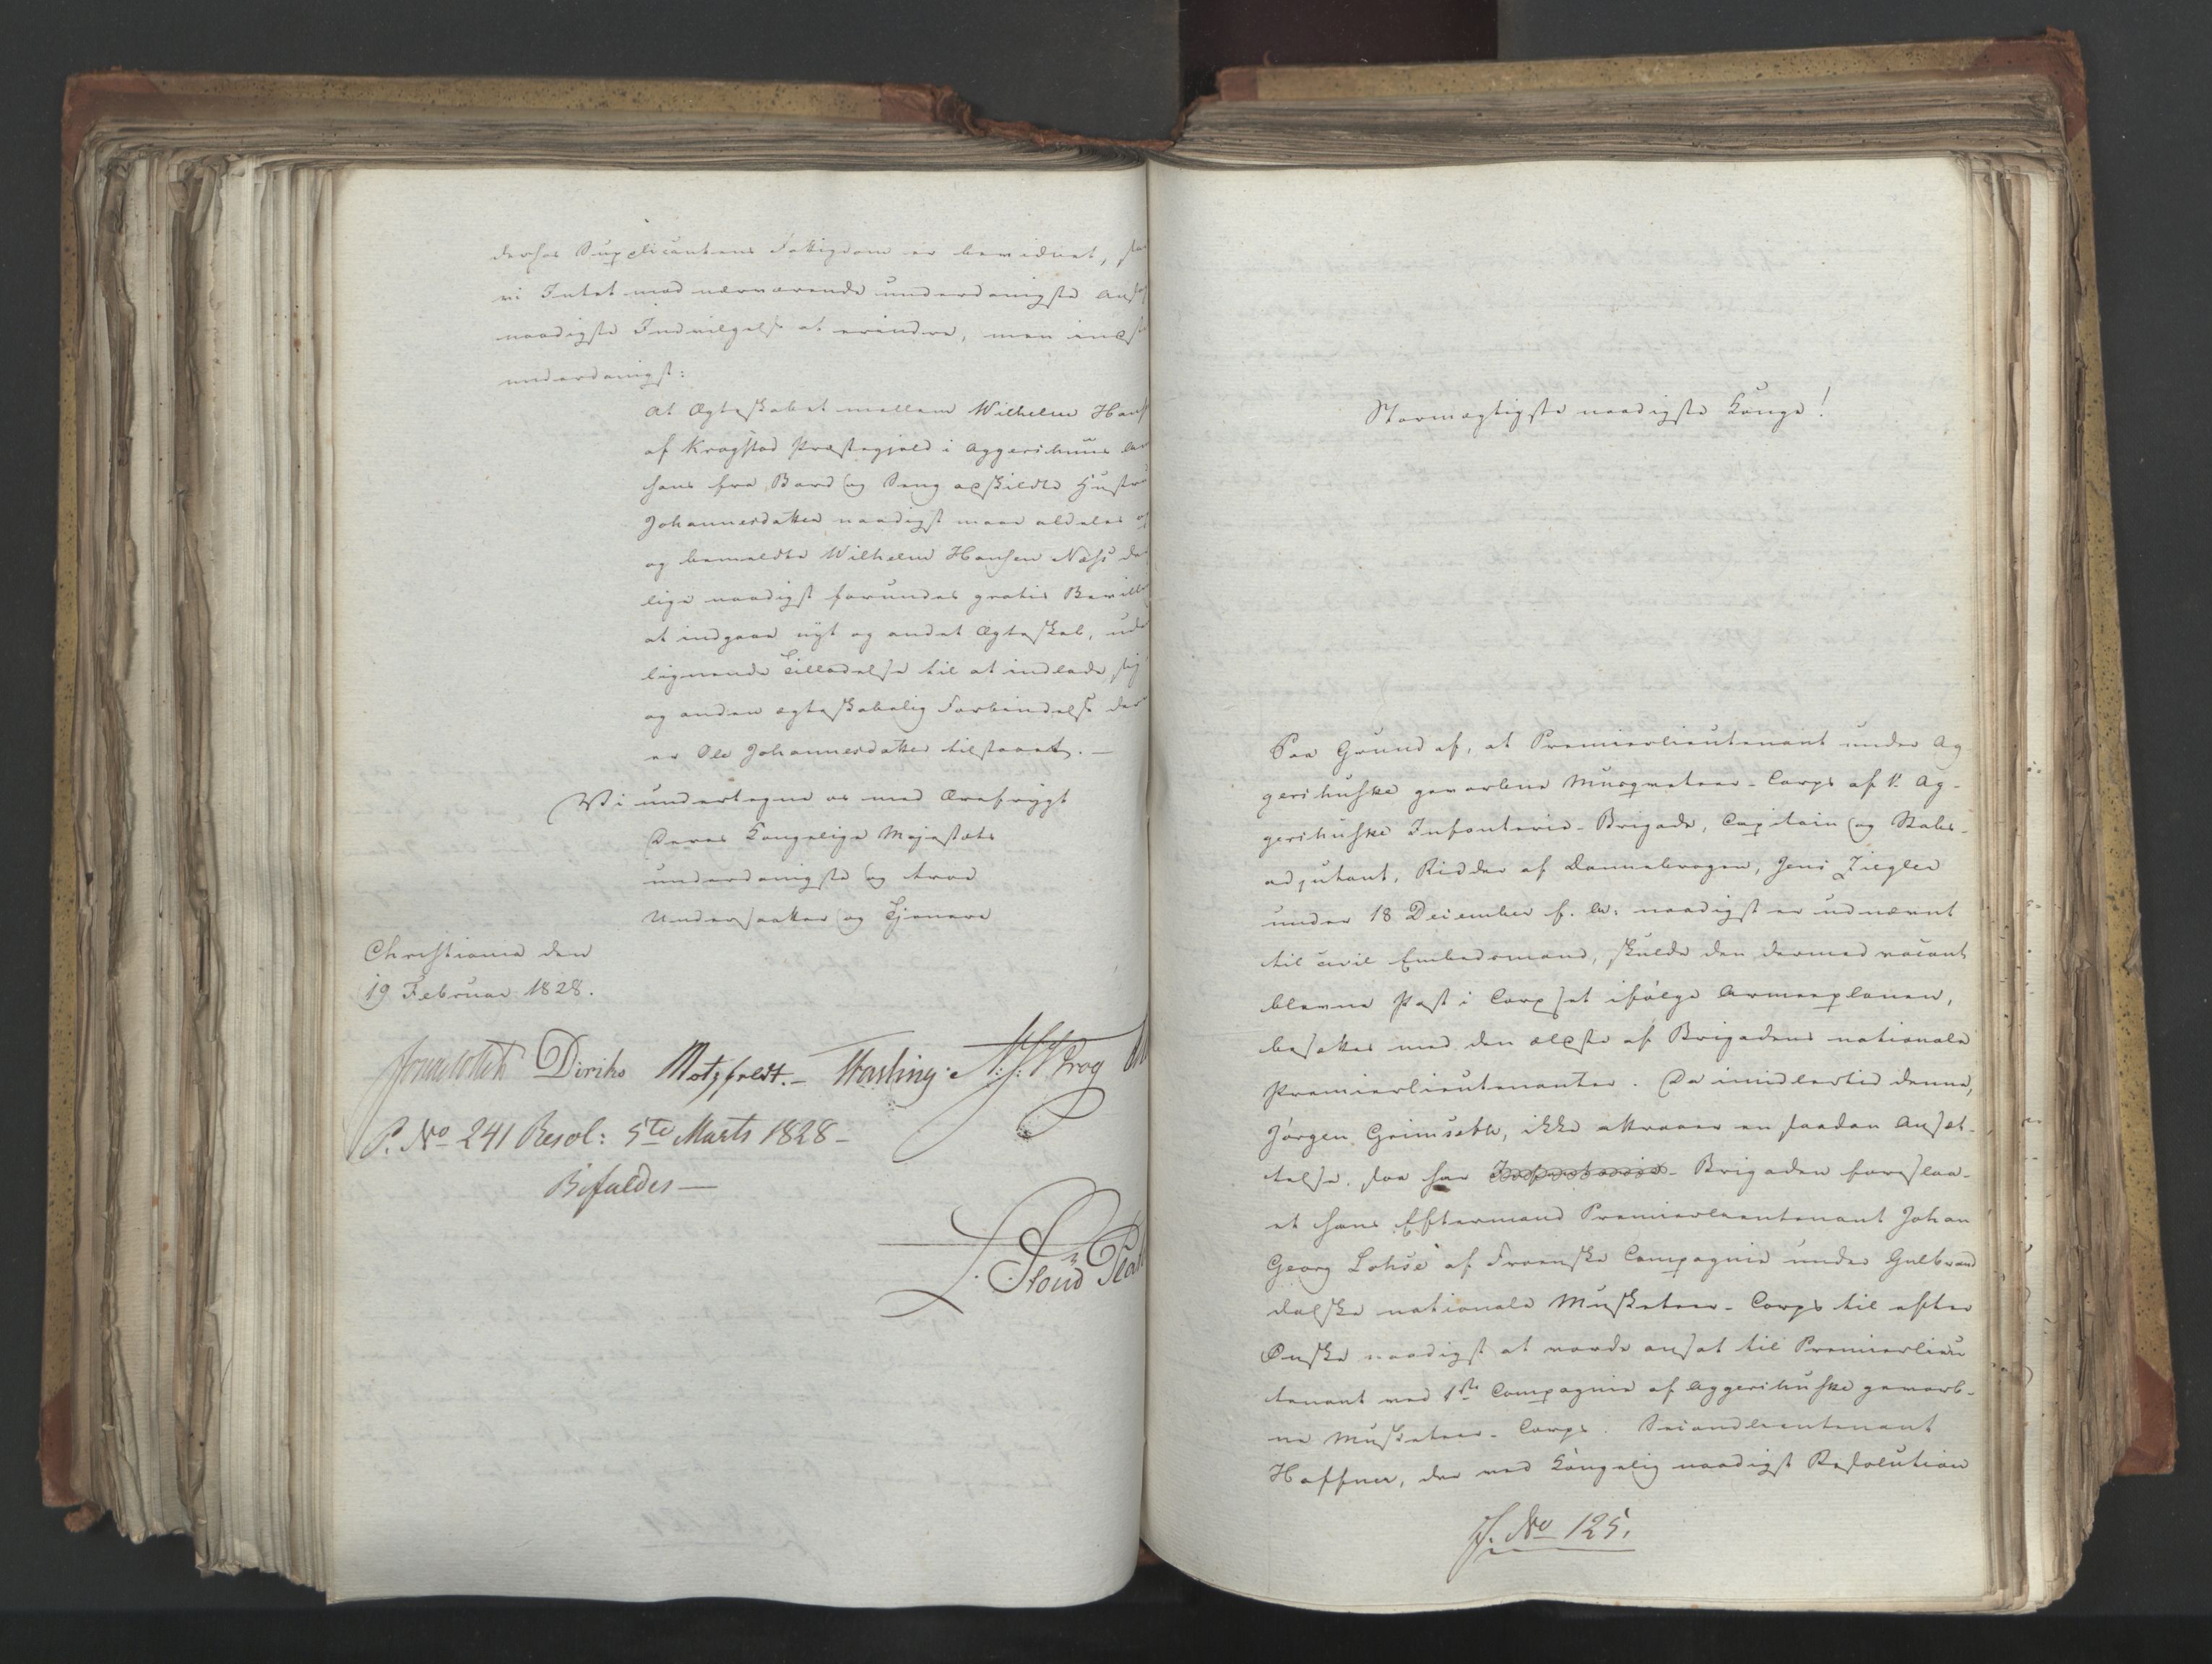 derhos Supplicantens Fattigdom er bevidnet,
vi Intet mod nærværende underdanigste
naadigste Indvilgelse at erindre, men
underdanigst:
At Ægteskabet mellem Wilhelm Hans
af Kragstad Præstegjeld i Aggershuus
hans fra Bord og Seng adskildte Hustru
Johannesdatter naadigst maa aldeles
og bemeldte Wilhelm Hansen Næss
lige naadigst forundes gratis
at indgaae nyt og andet Ægteskab,
lignende Tilladelse til at indlade sig
og anden ægteskabelig Forbindelse
er Ole Johannesdatter tilstaaet. —
Vi undertegne os med Ærefrygt
Deres Kongelige Majestæts
underdanigste og troe
Undersaatter og Tjenere
Christiania den
19 Februar 1828.
Diriks Motzfeldt. — Krog
P. No 241 Resol: 5te Marts 1828 —
Bifaldes —
Stormægtigste naadigste Konge!
Paa Grund af, at Premierlieutenant under Ag
gershuske gevorbne Musqueteer-Corps af 1e Ag-
gershuske Infanterie-Brigade, Capitain og Stabs-
adjutant, Ridder af Dannebrogen, Jens Ziegler
under 18 December f. A. naadigst er udnævnt
til civil Embedsmand, skulde den dermed vacant
blevne Post i Corpset ifølge Armeeplanen,
besættes med den ældste af Brigadens nationale
Premierlieutenanter. Da imidlertid denne,
Jørgen Grimseth, ikke attraaer en saadan Ansæt-
telse, saa har Brigaden foreslaa-
et hans Eftermand Premierlieutenant Johan
Georg Lohse af Froenske Compagnie under Gulbrand
dalske nationale Musketeer-Corps til efter
Ønske naadigst at vorde ansat til Premierlieu
tenant ved 1ste Compagnie af Aggershuske gevorb-
ne Musketeer-Corps. Secondlieutenant
Haffner, der ved Kongelig naadigst Resolution
J. No 125.